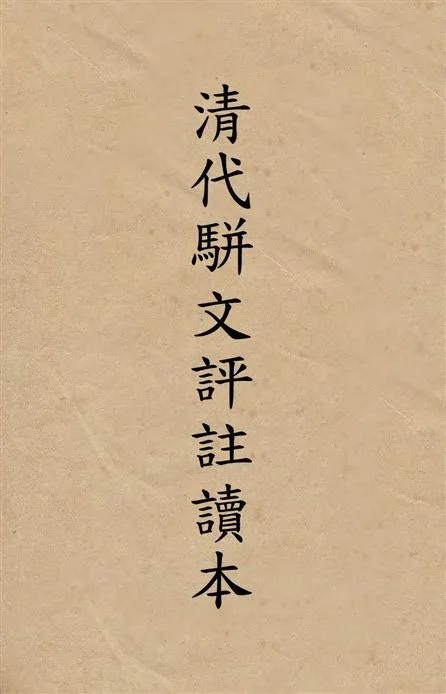 清代駢文評註讀本